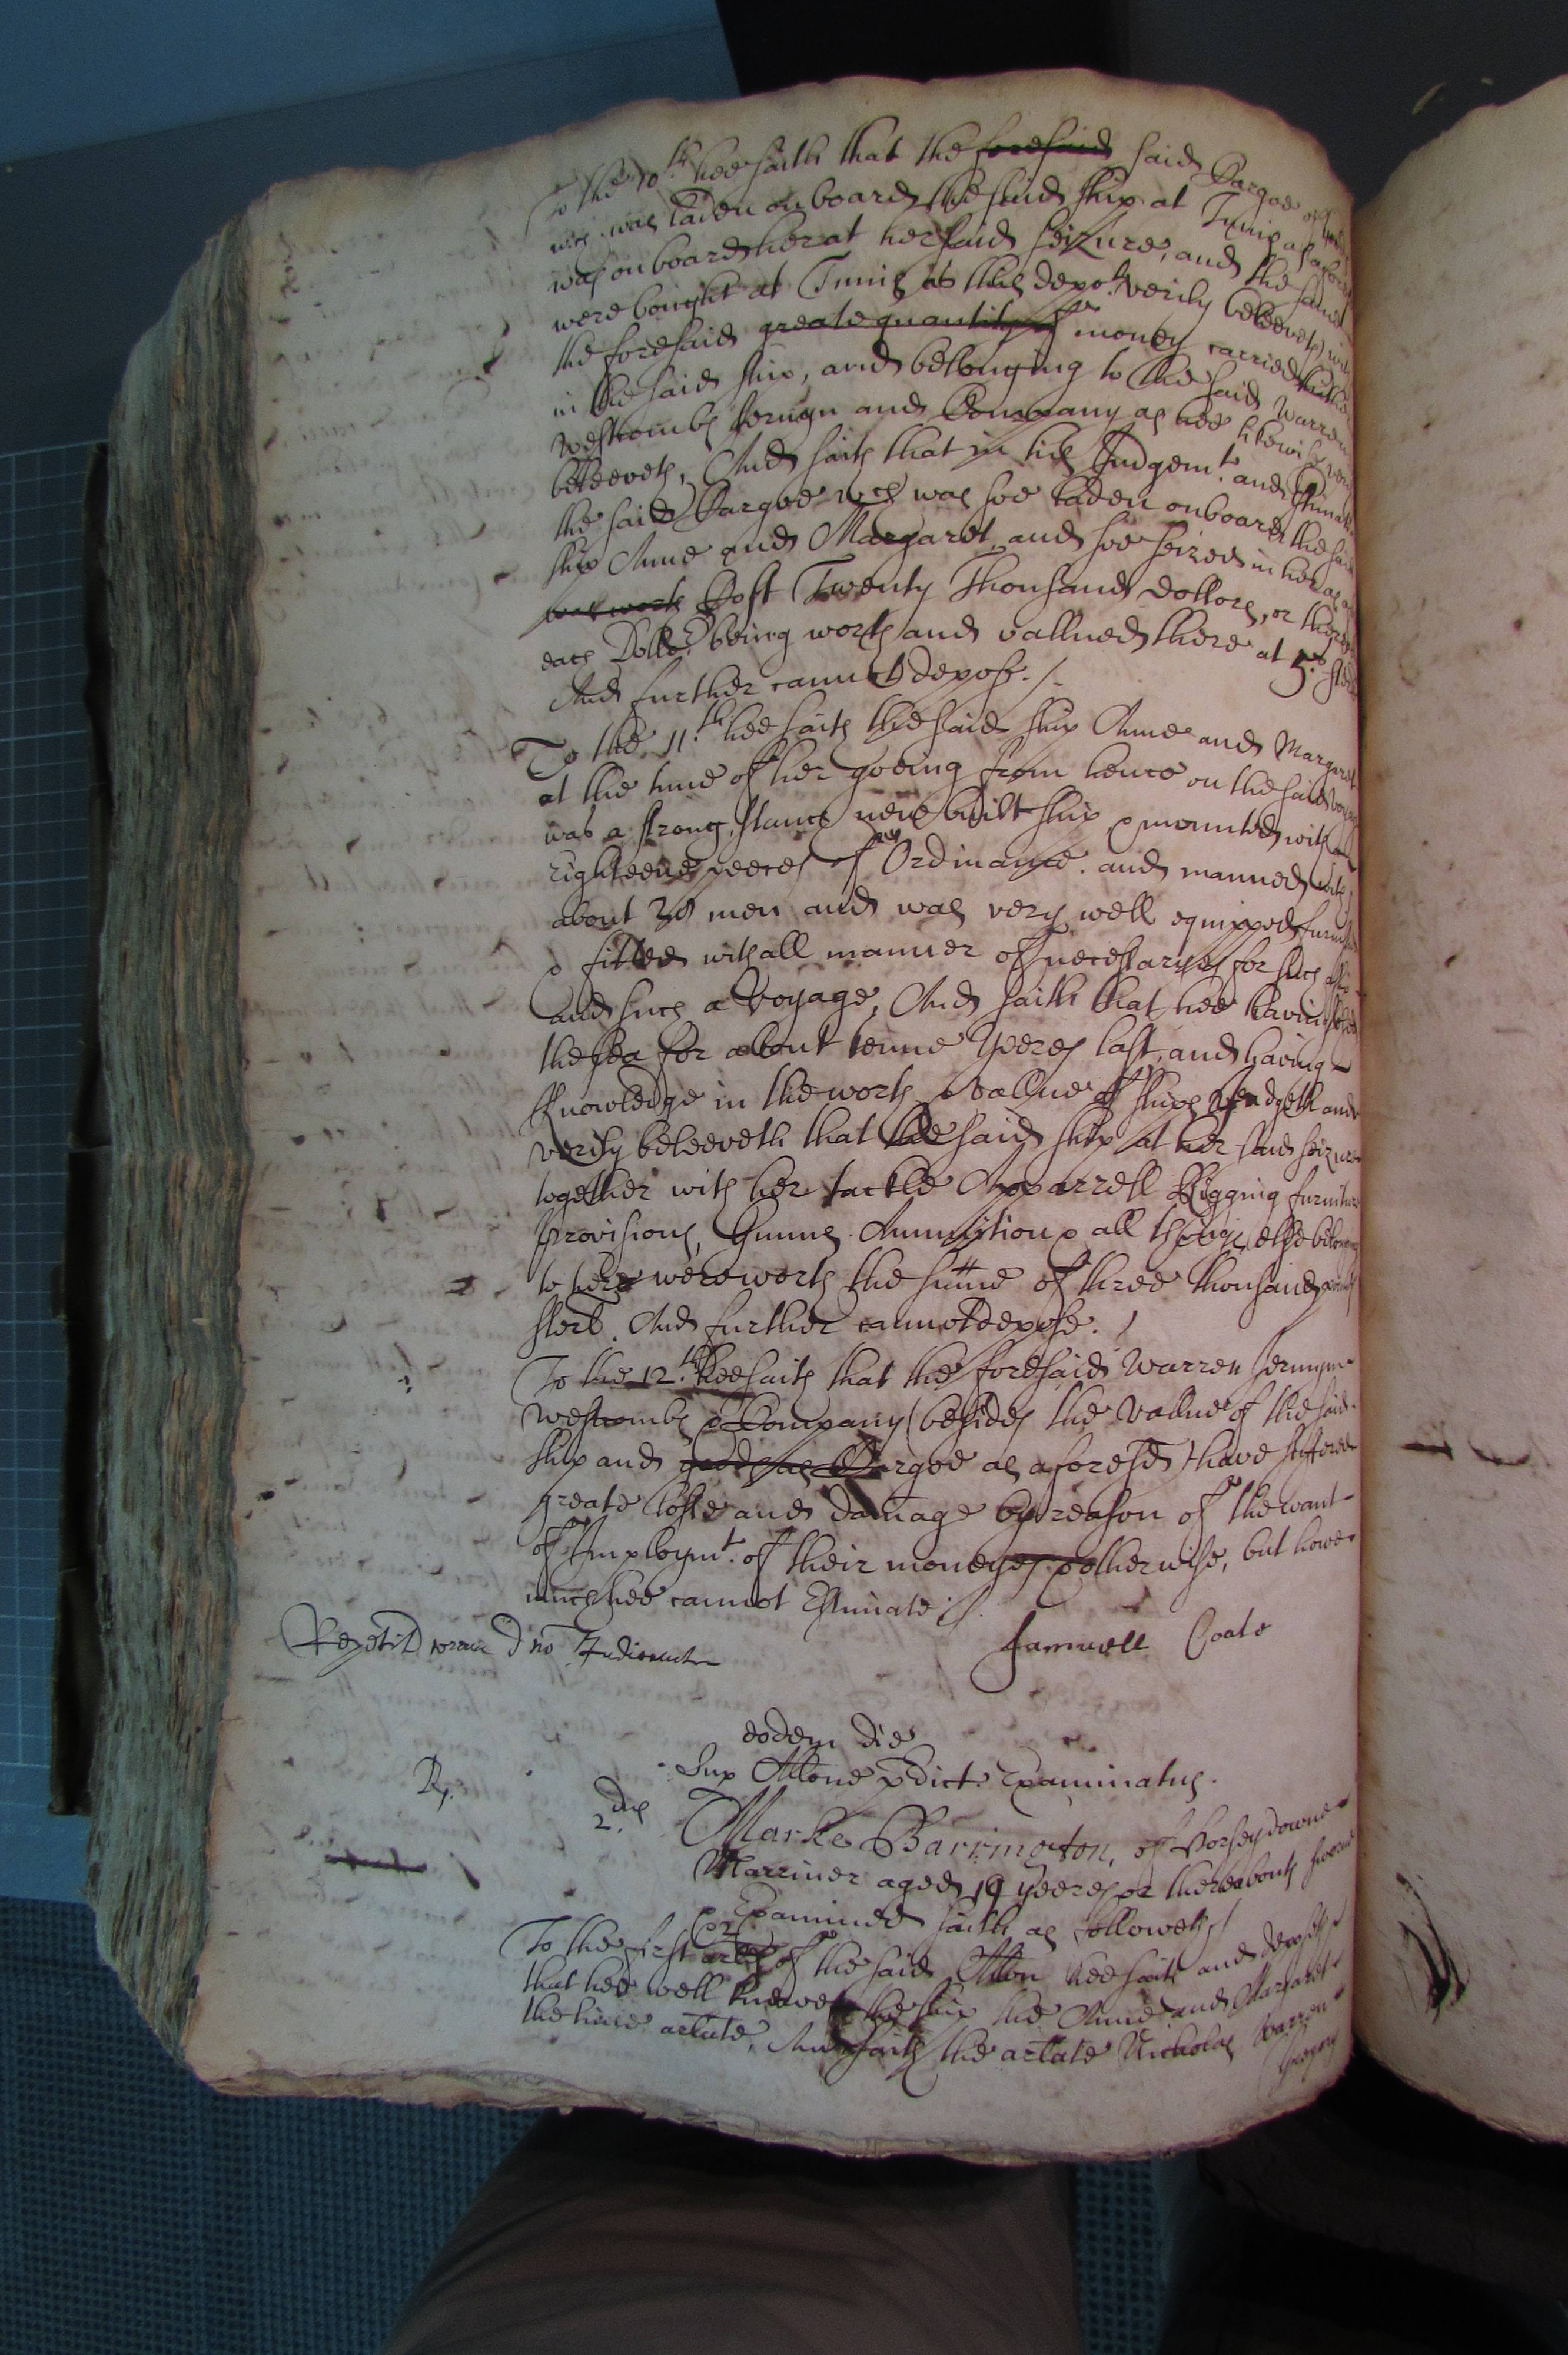 To the 10th hee saith that the foresaid said Cargoe of
wch was laden on board the said ship at Tunis as afore
was on board her at her said seizure, and the same
were bought at Tunis as this depot verily beleeveth with
the foresaid greate quantity of money carried thither
in the said ship, and belonging to the said Warren
Westcombe Jermyn and Company as hee likewise very
beleeveth, And saith that in his Judgemt. and Estimate
the said Cargoe wch was soe laden on board the said
ship Anne and Margaret and soe seized in her as
was worth Cost Twenty Thousand Dollors, or there
each Dollor being worth and vallued there at 5s ster
And further cannot depose ./.
To the 11.th hee saith the said ship Anne and Margaret
at the time of her goeing from hence on the said voyage
was a strong, stanch new built ship & mounted with
Eighteene peeces of Ordinance. and manned with
about 30 men and was very well equipped furnished
& fitted with all manner of necessaryes for such a ship
and such a Voyage, And saith that hee having used
the sea for about tenne Yeeres last, and having
Knowledge in the worth & vallue of ships Judgeth and
verily beleeveth that the said ship at her said seizure
together with her tackle Apparrell Rigging furniture
Provisions, Gunns Amunition & all things else belonging
to her were worth the summe of three thousand pounds
sterl. And further cannot depose. /
To the 12.th hee saith that the foresaid Warren Jermyn
Westcombe & Company (besides the vallue of the said
ship and goods as Cargoe as aforesd) have suffered
greate losse and damage by reason of the want
of Imploymt. of their moneyes & otherwise, but howe
much hee cannot Estimate ./.
Repetit coram d no Judicaut Samuell Coate
eodem die
Sup Allone pdict Examinatus.
Rp. 2.dus Marke Barrington, of Horsey downe
Marriner aged 19 yeeres or thereabouts sworne
& Examined saith as followeth /
To the first artle of the said Allon hee saith and deposeth
that hee well knewe the ship the Anne and Margaret
the time artlate, And saith the artlate Nicholas Warren
Gregory